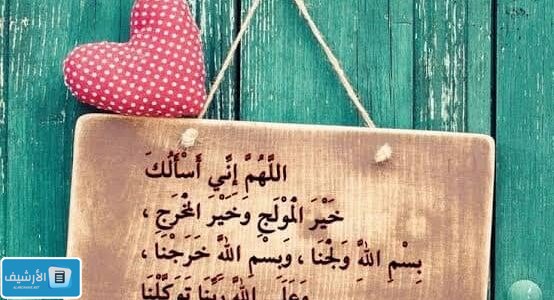 اللَّهُمَّ إِنِّي أَسْأَلُكَ
خَيْرَ الْمَوْلَجِ وَخَيْرَ الْمَخْرَجِ ،
بِسْمِ اللَّهِ وَلَجْنَا ، وَبِسْمِ اللَّهِ خَرَجْنَا ،
وَعَلَى اللَّهِ رَبِّنَا تَوَكَّلْنَا
الأرشيف